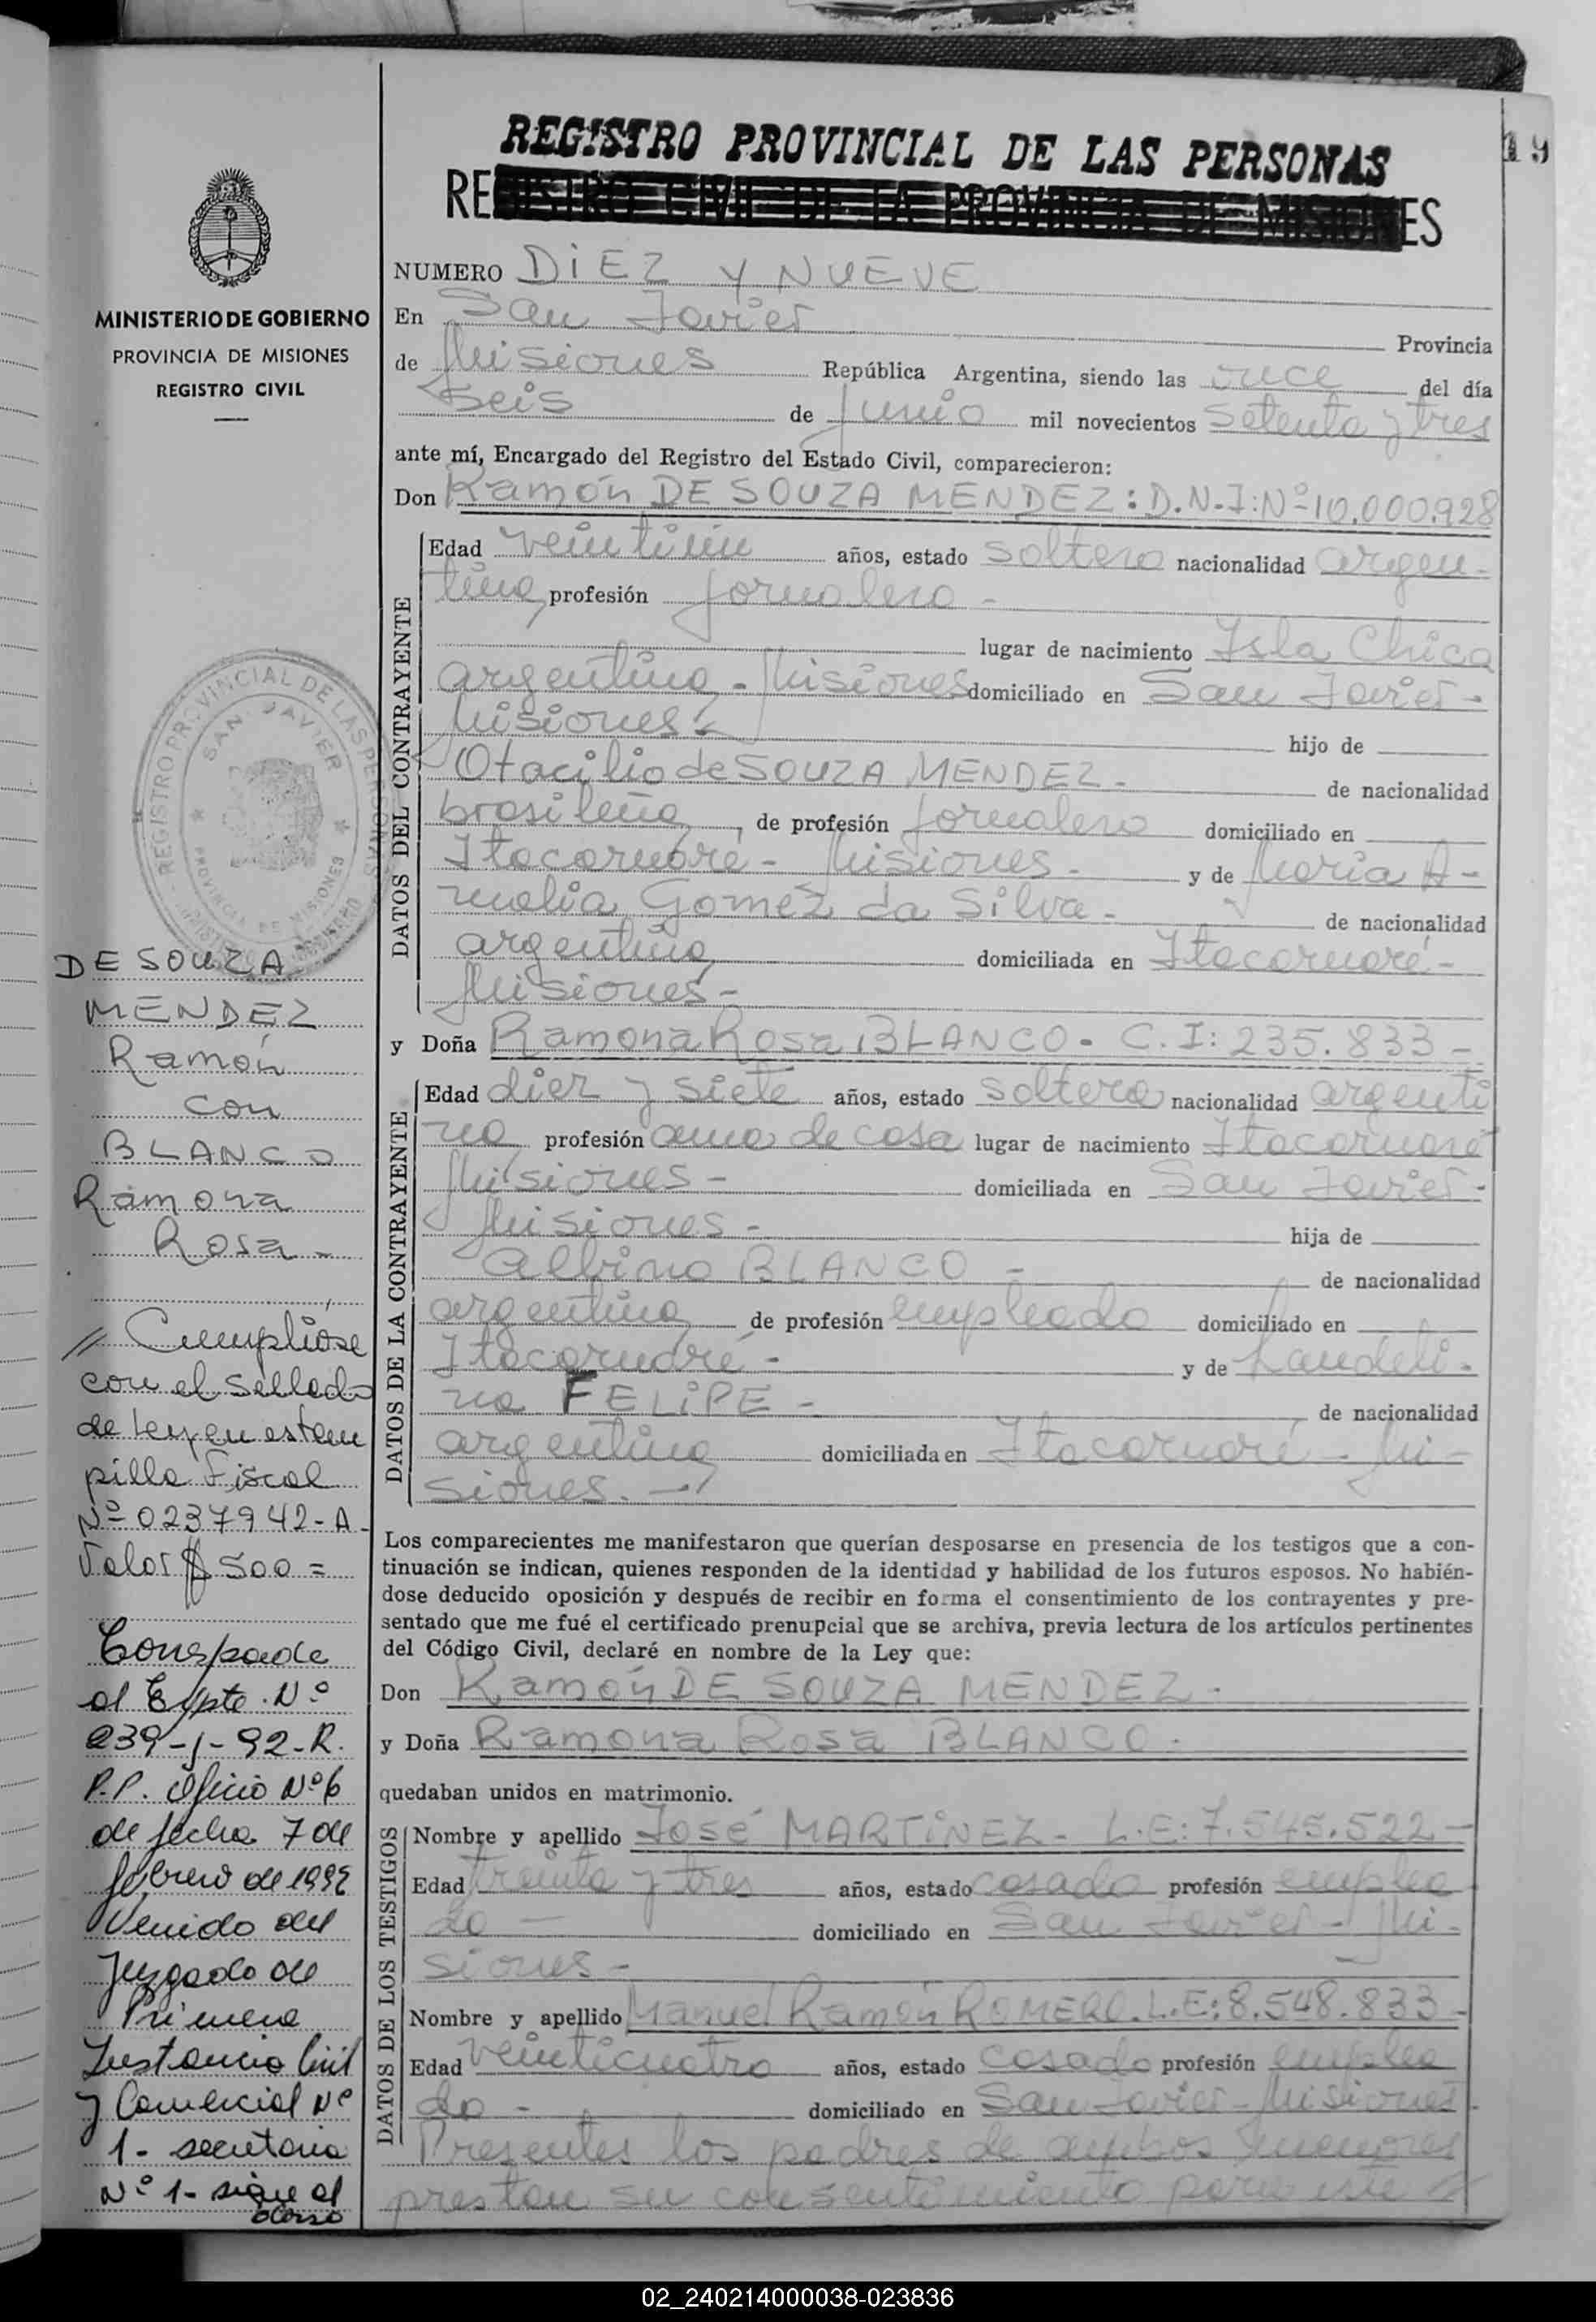 REGISTRO PROVINCIAL DE LAS PERSONAS
REGISTRO CIVIL DE LA PROVINCIA DE MISIONES
19
MINISTERIO DE GOBIERNO
PROVINCIA DE MISIONES
REGISTRO CIVIL
NUMERO DiEZ Y NUEVE
En San Javier
Provincia
de Misiones República Argentina, siendo las once del día
seis de Junio mil novecientos setenta y tres
ante mí, Encargado del Registro del Estado Civil, comparecieron:
Don Ramón DE SOUZA MENDEZ: D.N.I: Nº 10.000.928
DATOS DEL CONTRAYENTE
Edad veintiún años, estado soltero nacionalidad argen-
tina, profesión jornalero -
lugar de nacimiento Isla Chica
argentina - Misiones domiciliado en San Javier -
Misiones - hijo de
Otacilio de SOUZA MENDEZ - de nacionalidad
brasileña, de profesión jornalero domiciliado en
Itacaruaré - Misiones - y de María A-
malia Gomez da Silva - de nacionalidad
argentina domiciliada en Itacaruaré -
Misiones -
y Doña Ramona Rosa BLANCO - C.I: 235.833 -
DATOS DE LA CONTRAYENTE
Edad diez y siete años, estado soltera nacionalidad argenti
na profesión ama de casa lugar de nacimiento Itacaruaré
Misiones - domiciliada en San Javier -
Misiones - hija de
Albino BLANCO - de nacionalidad
argentina de profesión empleado domiciliado en
Itacaruaré - y de Laudeli-
na FELiPE - de nacionalidad
argentina domiciliada en Itacaruaré - Mi-
siones. -
Los comparecientes me manifestaron que querían desposarse en presencia de los testigos que a con-
tinuación se indican, quienes responden de la identidad y habilidad de los futuros esposos. No habién-
dose deducido oposición y después de recibir en forma el consentimiento de los contrayentes y pre-
sentado que me fué el certificado prenupcial que se archiva, previa lectura de los artículos pertinentes
del Código Civil, declaré en nombre de la Ley que:
Don Ramón DE SOUZA MENDEZ -
y Doña Ramona Rosa BLANCO -
quedaban unidos en matrimonio.
DATOS DE LOS TESTIGOS
Nombre y apellido José MARTiNEZ - L.E: 7.545.522 -
Edad treinta y tres años, estado casado profesión emplea
do - domiciliado en San Javier - Mi-
siones -
Nombre y apellido Manuel Ramón ROMERO. L.E: 8.548.833 -
Edad veinticuatro años, estado casado profesión emplea
do - domiciliado en San Javier - Misiones -
Presentes los padres de ambos menores
prestan su consentimiento para este
REGISTRO PROVINCIAL DE LAS PERSONAS
SAN JAVIER
PROVINCIA DE MISIONES
DE SOUZA
MENDEZ
Ramón
con
BLANCO
Ramona
Rosa -
// Cumplióse
con el sellado
de ley en estam
pilla Fiscal
Nº 0237942-A -
Valor $ 500 =
Corresponde
al Expte. Nº
239-J-92-R.
P.P. Oficio Nº 6
de fecha 7 de
febrero de 1992
Venido del
Juzgado de
Primera
Instancia Civil
y Comercial Nº
1 - secretaria
Nº 1 - sigue al
dorso
02_240214000038-023836